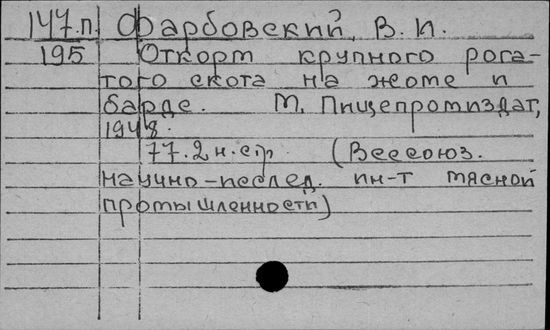 147.п. Фарбовский, В. И.
195 Откорм крупного рога-
того скота на жоме и
барде. М. Пищепромиздат,
1948.
77.2 н.с.р. (Всесоюз.
научно-исслед. ин-т мясной
промышленности)